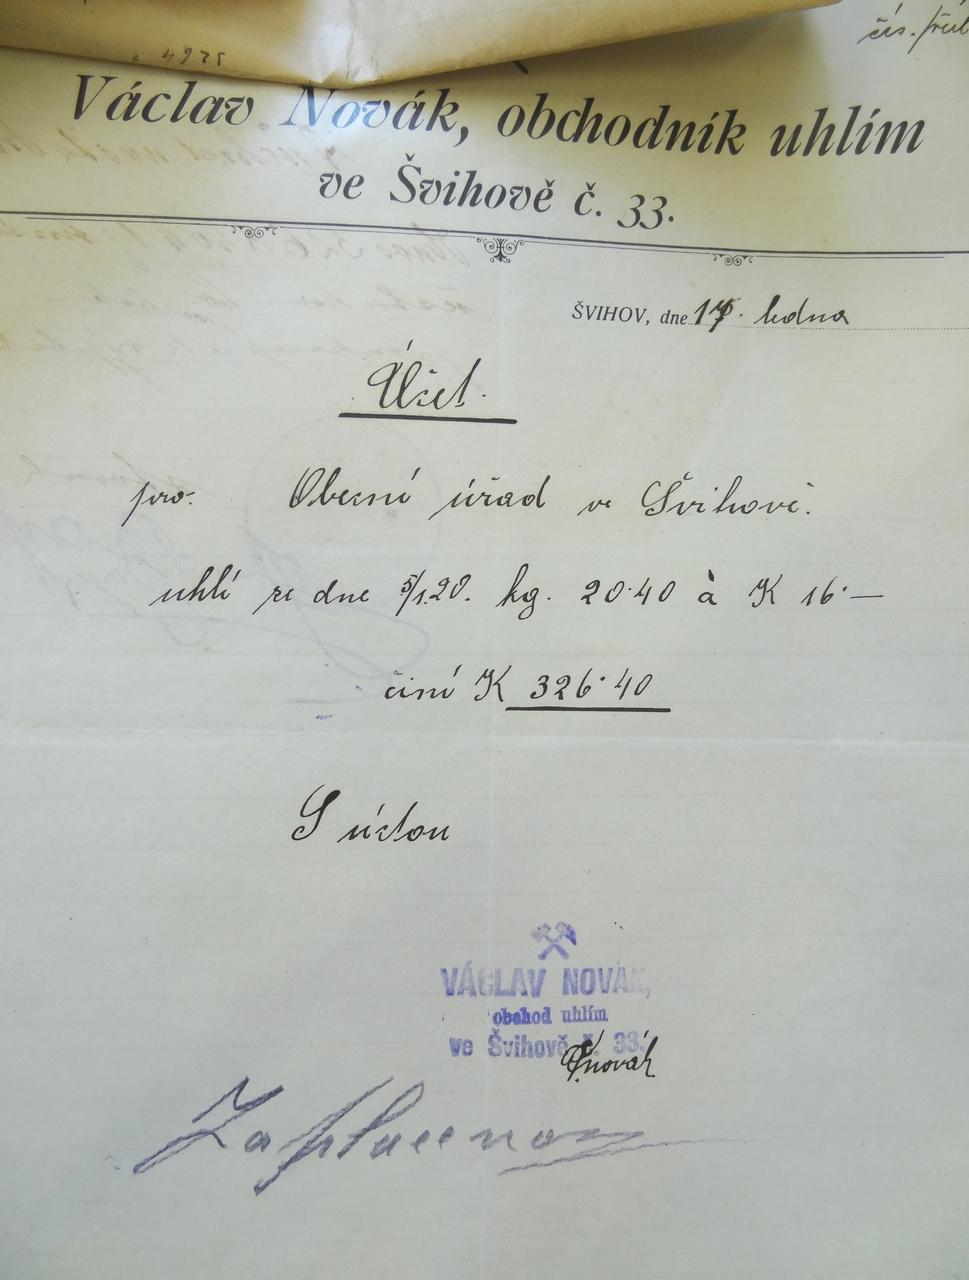 čís.
4975
Václav Novák, obchodník uhlím
ve Švihově č. 33.
ŠVIHOV, dne 17. ledna
Účet.
pro. Obecní úřad ve Švihově.
uhlí ze dne 5/1.20. kg. 20·40 à K 16·—
činí K 326·40
S úctou
VÁCLAV NOVÁK,
obchod uhlím
ve Švihově č. 33.
Novák
Zaplaceno